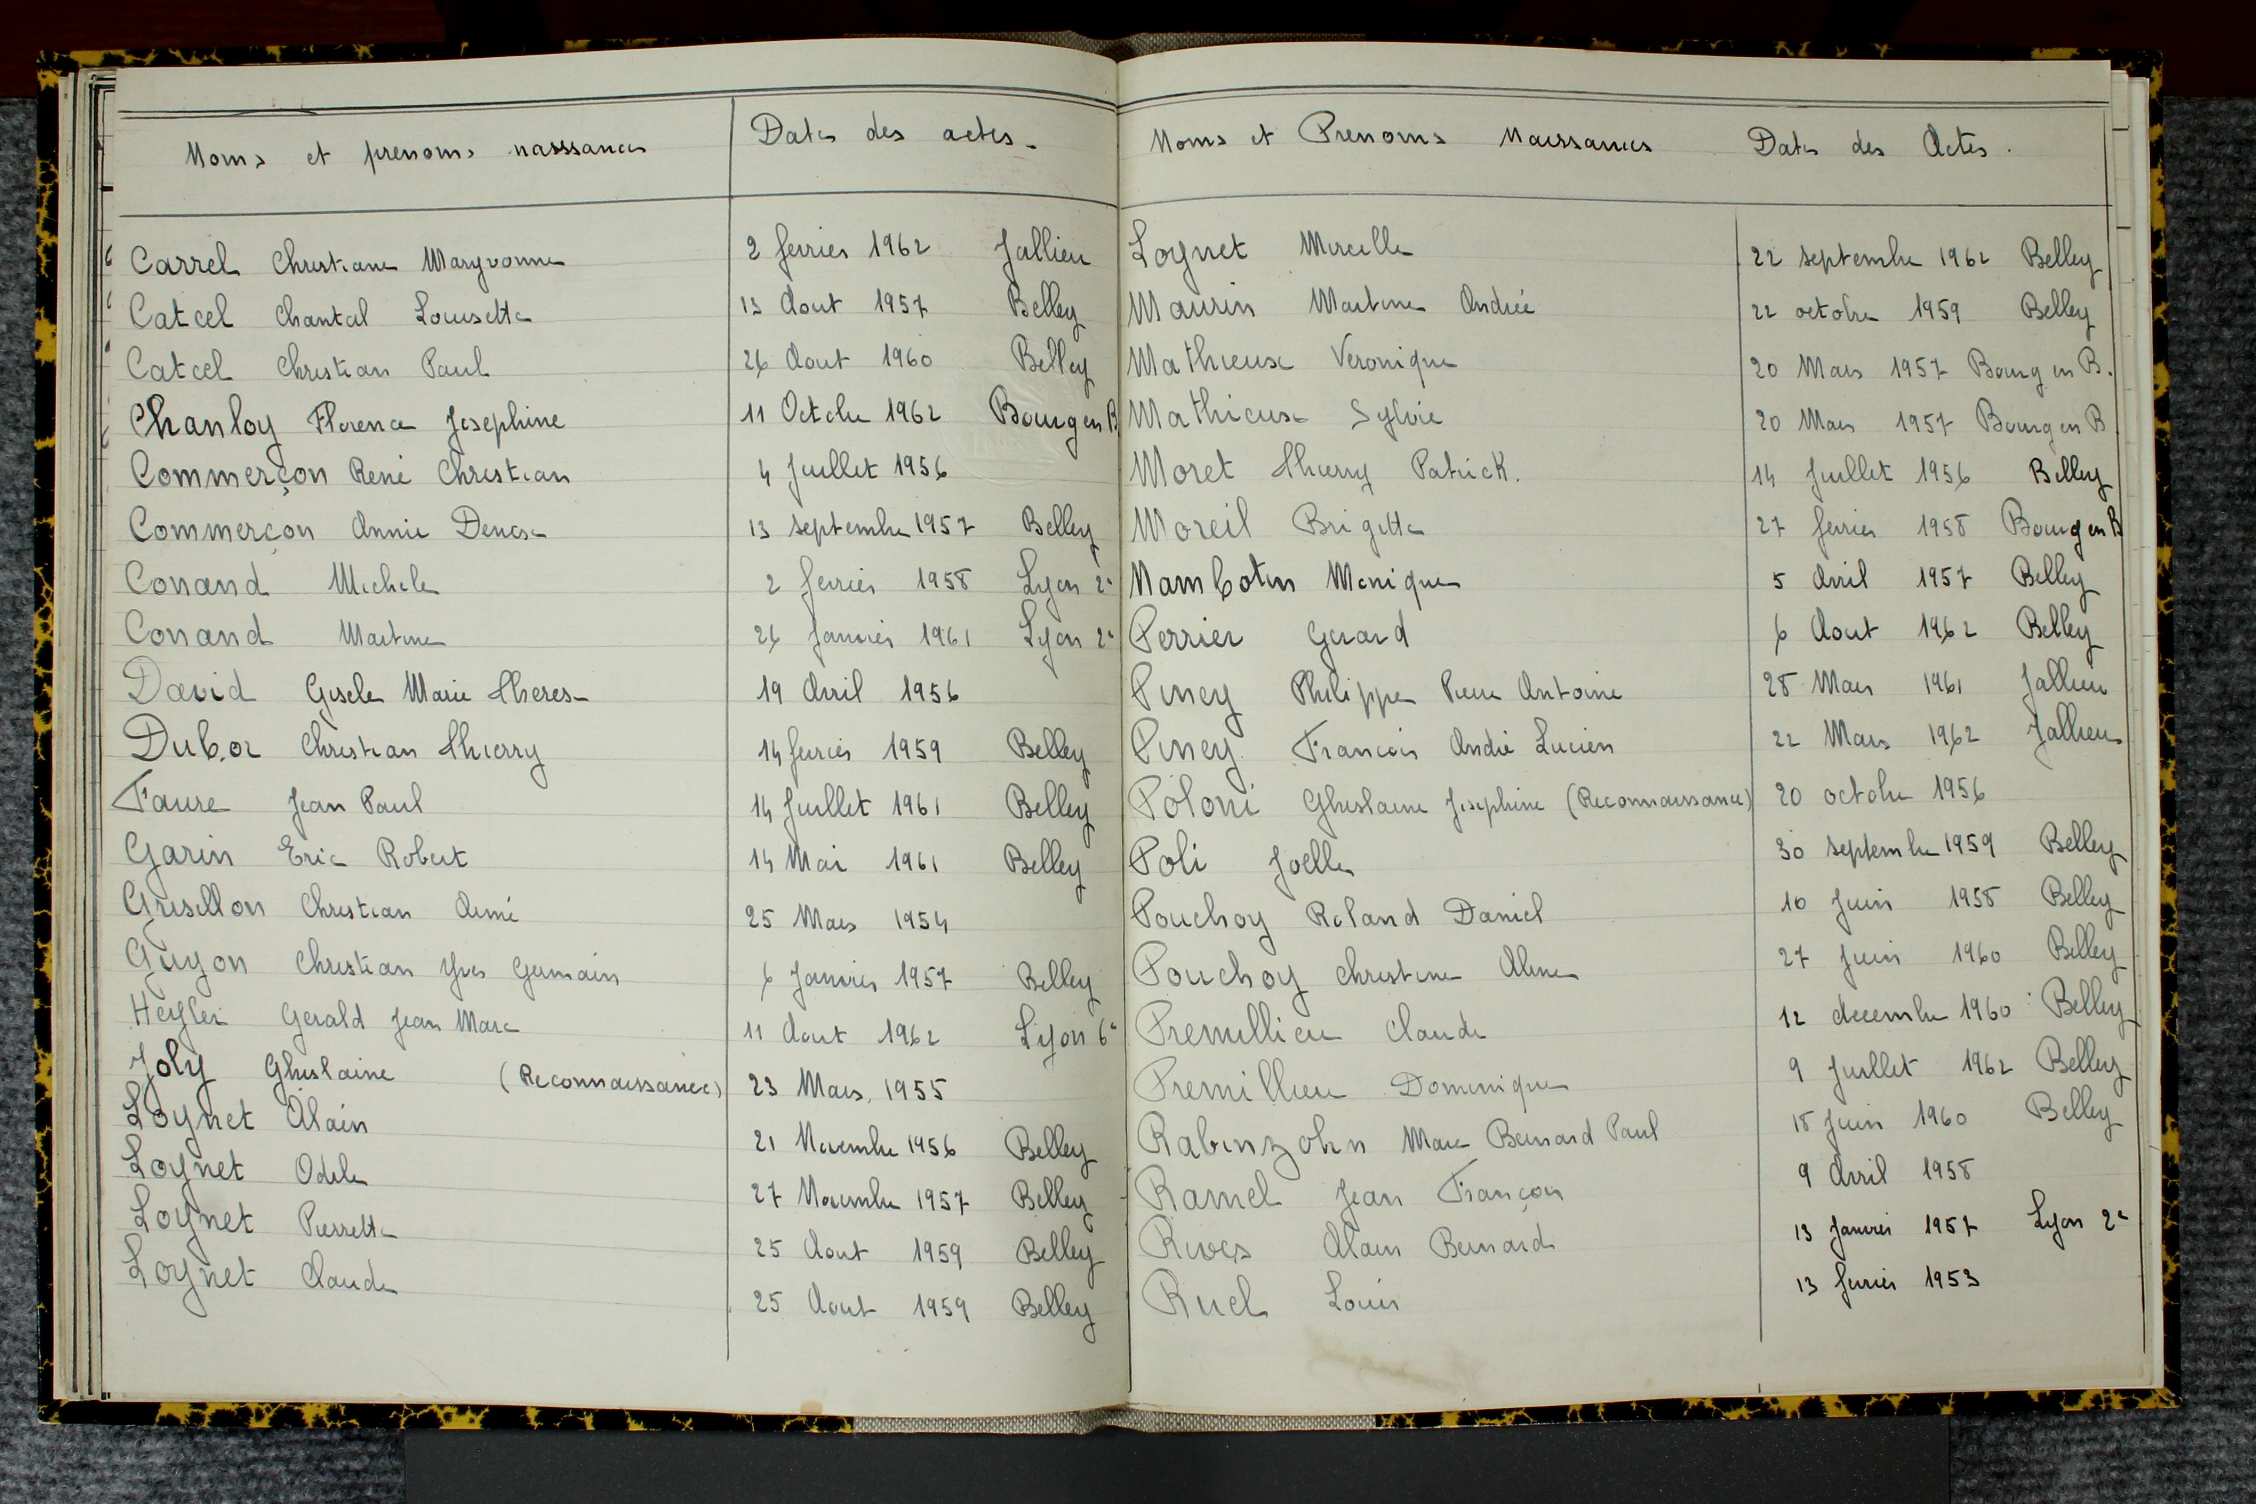 Noms et prenoms naissances Dates des actes.
Carrel Christiane Maryvonne 2 fevrier 1962 Jallieu
Catcel Chantal Louisette 13 Aout 1957 Belley
Catcel Christian Paul 26 Aout 1960 Belley
Chanloy Florence Josephine 11 Octobre 1962 Bourg en B
Commerçon René Christian 4 Juillet 1956
Commerçon Annie Denise 13 septembre 1957 Belley
Conand Michele 2 fevrier 1958 Lyon 2e
Conand Martine 26 Janvier 1961 Lyon 2e
David Gisele Marie Therese 19 Avril 1956
Duboz Christian Thierry 14 fevrier 1959 Belley
Faure Jean Paul 14 Juillet 1961 Belley
Garin Eric Robert 14 Mai 1961 Belley
Grisillon Christian Aimé 25 Mars 1954
Guyon Christian Yves Germain 6 Janvier 1957 Belley
Heyler Gerald Jean Marc 11 Aout 1962 Lyon 6e
Joly Ghislaine (Reconnaissance) 23 Mars 1955
Loynet Alain 21 Novembre 1956 Belley
Loynet Odile 27 Novembre 1957 Belley
Loynet Pierrette 25 Aout 1959 Belley
Loynet Claude 25 Aout 1959 Belley
Noms et Prenoms Naissances Dates des Actes.
Loynet Mireille 22 septembre 1962 Belley
Maurin Martine Andrée 22 octobre 1959 Belley
Mathieux Veronique 20 Mars 1957 Bourg en B.
Mathieux Sylvie 20 Mars 1957 Bourg en B.
Moret Thierry Patrick. 14 Juillet 1956 Belley
Moreil Brigitte 27 fevrier 1958 Bourg en B
Nambotin Monique 5 Avril 1957 Belley
Perrier Gerard 6 Aout 1962 Belley
Piney Philippe Pierre Antoine 28 Mars 1961 Jallieu
Piney François André Lucien 22 Mars 1962 Jallieu
Poloni Ghislaine Josephine (Reconnaissance) 20 octobre 1956
Poli Joelle 30 septembre 1959 Belley
Pouchoy Roland Daniel 10 Juin 1958 Belley
Pouchoy Christine Aline 27 Juin 1960 Belley
Premillieu Claude 12 decembre 1960 Belley
Premillieu Dominique 9 Juillet 1962 Belley
Rabinzohn Marc Bernard Paul 18 Juin 1960 Belley
Ramel Jean François 9 Avril 1958
Rives Alain Bernard 13 Janvier 1957 Lyon 2e
Ruel Louis 13 fevrier 1953